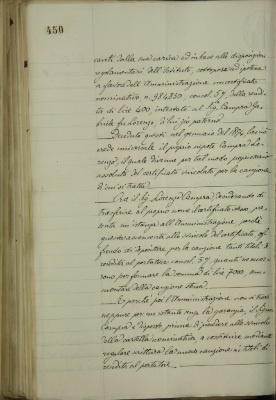 450
canti dalla sua carica ed in base alle disposizioni
regolamentari dell'Istituto, sottopose ad ipoteca
a favore dell'Amministrazione un certificato
nominativo n. 984830, consol. 5%, della rendi-
ta di lire 400, intestato al Sig. Campra Ga-
briele fu Lorenzo, di lui zio paterno.
Deceduto questi nel gennaio del 1874, lasciò
erede universale il proprio nipote Campra Lo-
renzo, il quale divenne per tal modo proprietario
assoluto del certificato vincolato per la cauzione
di cui si tratta.
Ora il Sig. Lorenzo Campra desiderando di
trasferire al proprio nome il certificato stesso, pre-
senta un' istanza all'Amministrazione perchè
questa acconsenta allo svincolo del certificato, of-
frendo di depositare per la cauzione tanti titoli di
rendita al portatore consol. 5% quanti ne occor-
rono per formare la somma di lire 7000, am-
montare della cauzione stessa.
E perchè poi l'Amministrazione non si trovi
neppure per un istante senza la garanzia, il Signor
Campra è disposto prima di procedere allo svincolo
della cartella nominativa, a costituire mediante
regolare scrittura la nuova cauzione in titoli di
rendita al portatore.